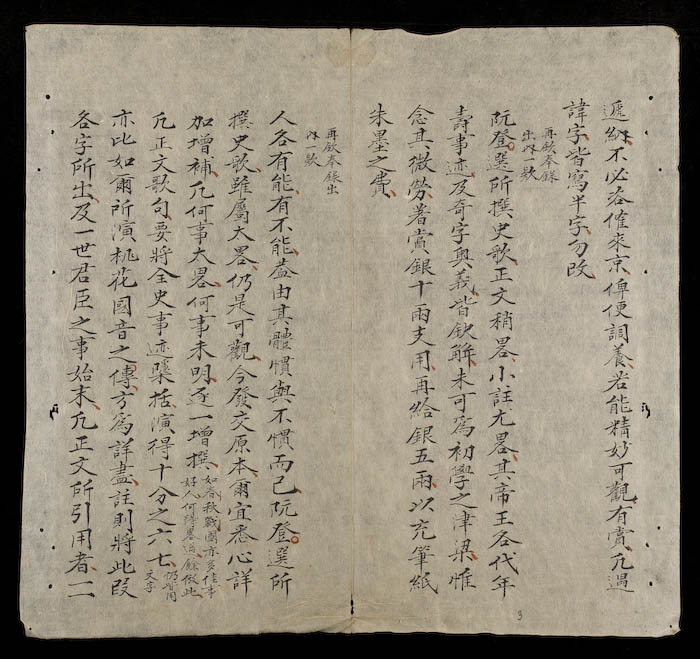 遞納不必各催來京俾便詞養若能精妙可觀有賞凡遇
諱字皆寫半字勿改
再欽奉錄
出內一欵
阮登選所撰史歌正文稍畧小註尤畧其帝王各代年
壽事迹及奇字奧義皆欽解未可爲初學之津梁惟
念其微勞著賞銀十兩支用再給銀五兩以充筆紙
朱墨之費
再欽奉錄出
內一欵
人各有能有不能蓋由其體慣與不慣而已阮登選所
撰史歌雖屬太畧仍是可觀今發交原本爾宜悉心詳
加增補凡何事太畧何事未明逐一增撰如春秋戰國亦多佳事
好人何得畧過餘倣此
凡正文歌句要將全史事迹檃括演得十分之六七仍當用
文字
亦比如爾所演桃花國音之傳方爲詳盡註則將此段
各字所出及一世君臣之事始末凡正文所引用者一一
3